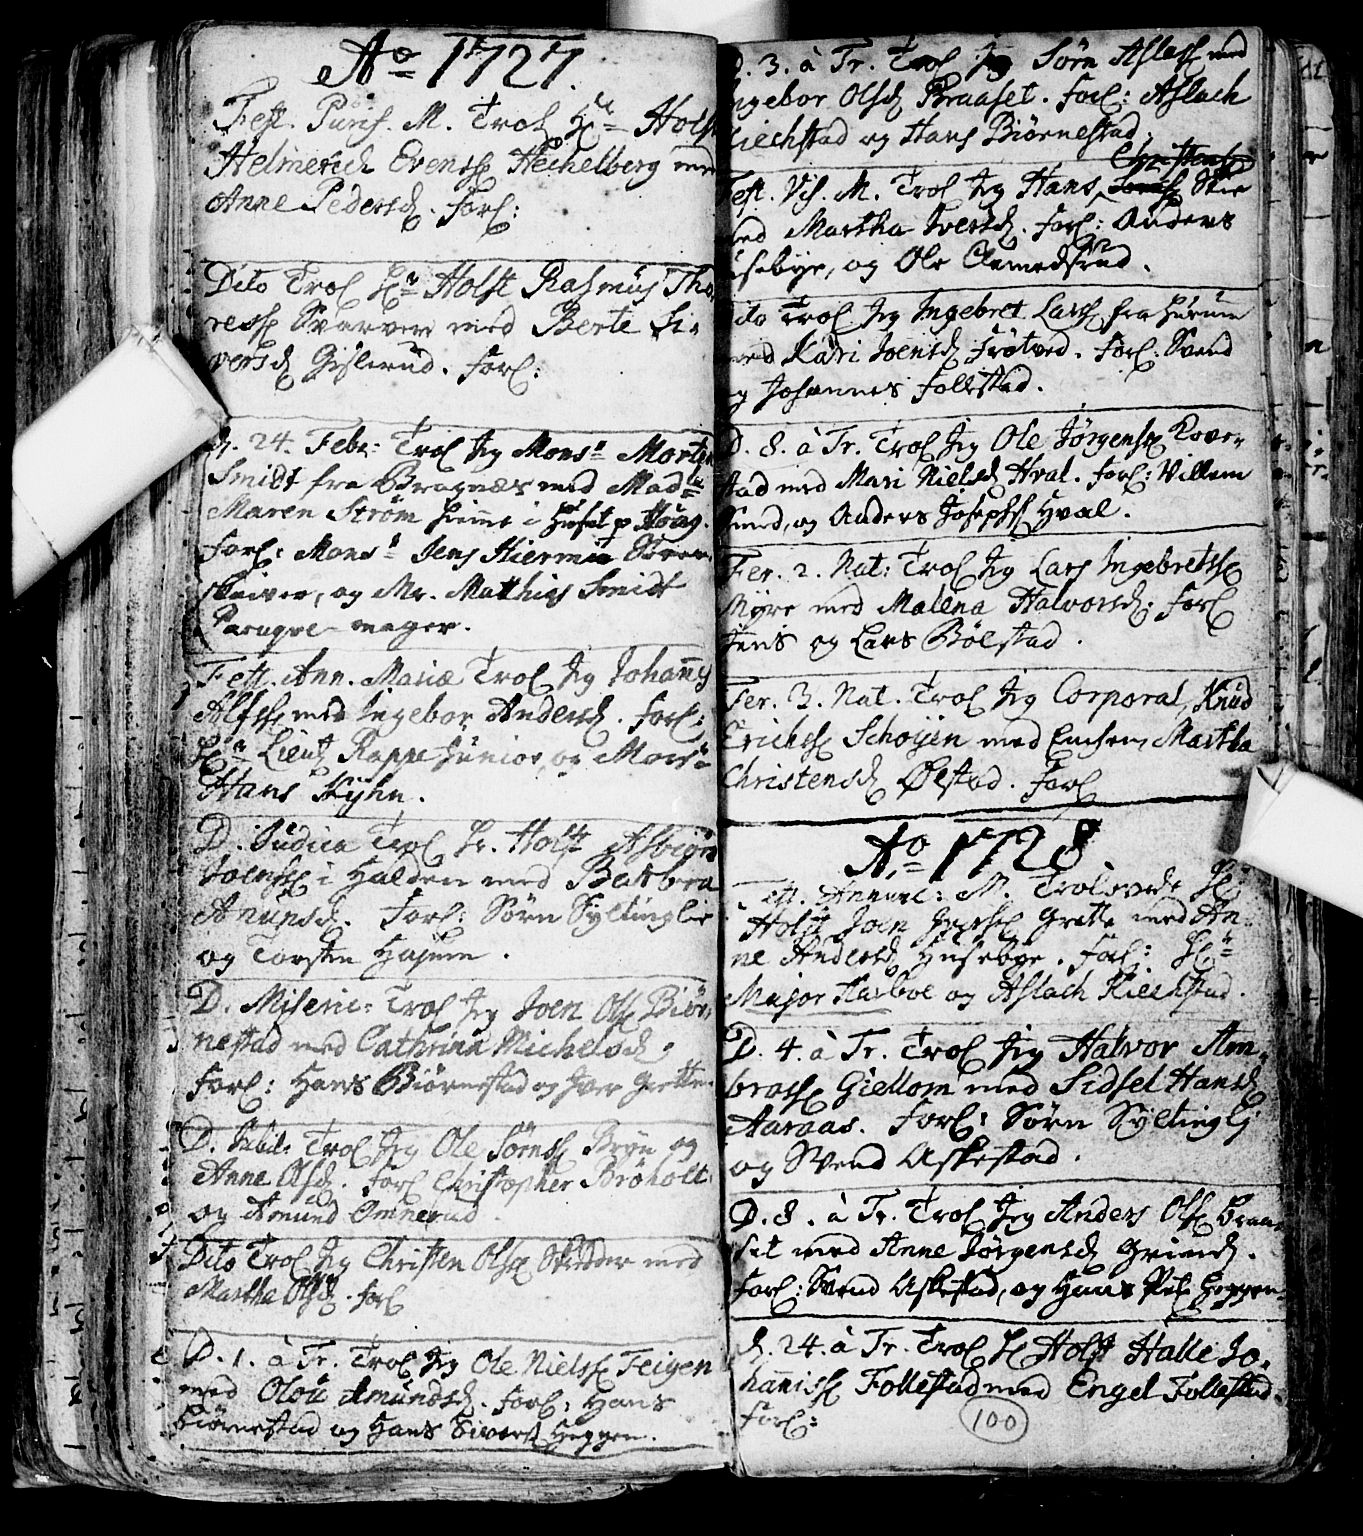 Ao 1727.
Fest. Purif. M. Trol. Hr Holst
Helmerich Evenss. Hechelberg med
Anne Pedersd. Forl:
Dito Trol. Hr Holst Rasmus Tho-
ress. Svarver med Berte Si-
versd. Gislerud. Forl:
D. 24. Febr: Trol. Jeg Monsr Morten
Smidt fra Bragnæs med Madm
Maren Strøm hiemme i Huset p. Houg.
Forl: Monsr Jens Hiermin
skriver, og Mr. Mathias Smidt
Paruqve-mager.
Fest. Ann. Mariæ Trol. Jeg Johannes
Alfss. med Ingebor Andersd. Forl:
Hr Lieut Rappe Junior, og Monsr
Hans Kyhn.
D. Judica Trol. Hr. Holst Asbiørn
Joenss. i Halden med Barbra
Anunsd. Forl: Sørn Syltinglie
og Torsten Hajum.
D. Miseric: Trol. Jeg Joen Olss. Biør-
nestad med Cathrina Michelsd.
Forl: Hans Biørnestad og Iver Grette.
D. Jubil: Trol. Jeg Ole Sørnss. Brøn og
Anne Olsd. Forl. Christopher Brøholt
og Amund Omnerud.
Dito Trol. Jeg Christen Olss. med
Martha Olsd. Forl.
D. 1. à Tr. Trol. Jeg Ole Nielss. Feigen
med Olou Amundsd. Forl: Hans
Biørnestad og Hans Siverss. Heggen.
D. 3. à Tr. Trol. Jeg Sørn Asless. med
Ingebor Olsd. Braaset. Forl: Aslach
Kiechstad og Hans Biørnestad.
Christenss.
Fest. Vis. M. Trol. Jeg Hans Skie
med Martha Iversd. Forl: Anders
Husebye, og Ole Clemedsrud.
Dito Trol. Jeg Ingebret Larss. fra Hurum
med Kari Joensd. Frøtved. Forl: Svend
og Johannes Follestad.
D. 8. à Tr. Trol. Jeg Ole Jørgenss. Kover-
stad med Mari Nielsd. Hval. Forl: Villum
Smed, og Anders Josephss. Hval.
Fer. 2. Nat: Trol. Jeg Lars Ingebretss.
Myre med Malena Halvorsd: Forl
Jens og Lars Bølstad.
Fer. 3. Nat. Trol. Jeg Corporal, Knud
Erichss. Schoyen med Enchen Martha
Christensd. Ølstad. Forl
Ao 1728.
Fest. Annunc: M. Trolovede Hr
Holst Joen Iverss. Grette med An-
ne Andersd. Husebye. Forl: Hr
Major Harboe og Aslach Kiechstad.
D. 4. à Tr. Trol. Jeg Halvor Am-
bross. Giellom med Sidsel Hansd.
Aaraas. Forl: Sørn Syltinglj
og Svend Askestad.
D. 8. à Tr. Trol. Jeg Anders Olss. Braa-
set med Anne Jørgensd. Grimsr.
Forl: Svend Askestad, og Hans Heggen.
D. 24. à Tr. Trol. Hr Holst Halle Jo-
haniss. Follestad med Engel Follestad.
Forl:
100